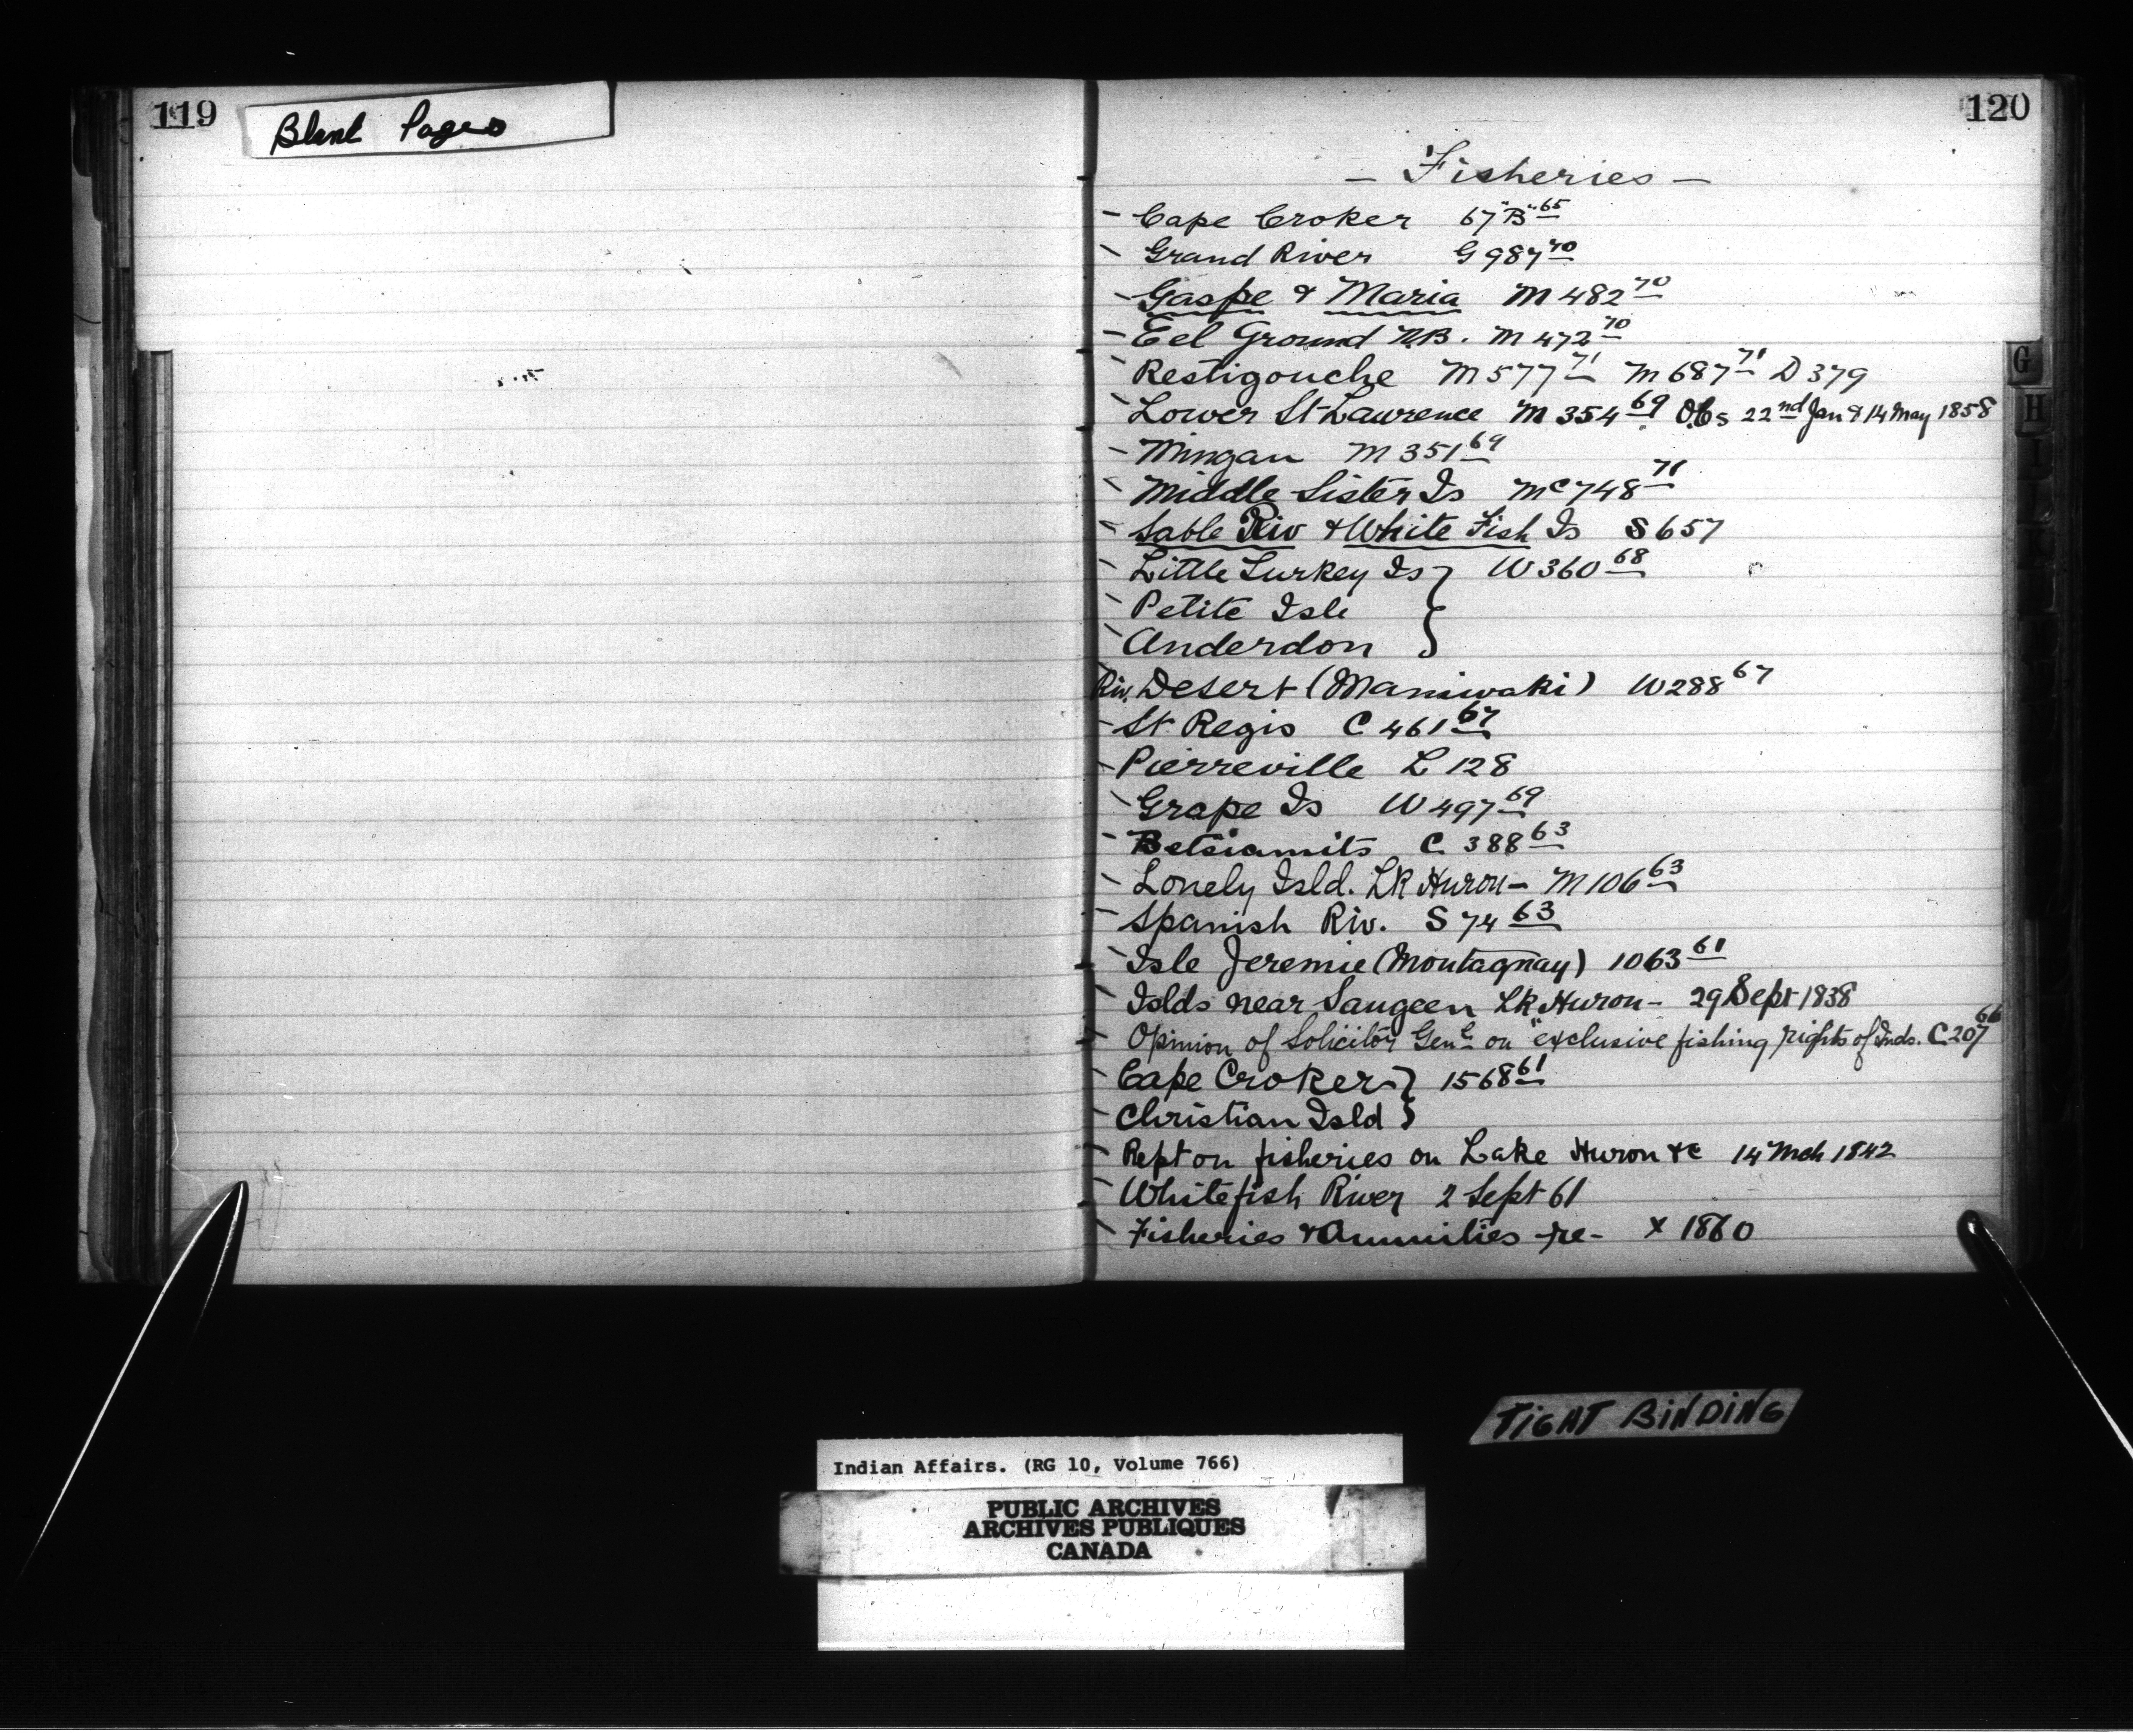 119
Blank Pages
120
- Fisheries -
- Cape Croker 67 "B" 65
- Grand River G 987 70
- Gaspe & Maria M 482 70
- Eel Ground N.B. M 472 70
- Restigouche M 577 71 M 687 71 D 379
- Lower St Lawrence M 354 69 22nd Jan & 14 May 1858
- Mingan M 351 69
- Middle Sister Is Mc 748 71
- Sable Riv & White Fish Is S 657
- Little Turkey Is } W 360 68
- Petite Isle
- Anderdon }
Riv. Desert (Maniwaki) W 288 67
- St Regis C 461 67
- Pierreville L 128
- Grape Is W 497 69
- Betsiamits C 388 63
- Lonely Isld. Lk Huron - M 106 63
- Spanish Riv. S 74 63
- Isle Jeremie (Montagnay) 1063 61
- Islds near Saugeen Lk Huron - 29 Sept 1838
- Opinion of Solicitor Genl on "exclusive fishing rights of Inds. C 207 66
- Cape Croker } 1568 61
- Christian Isld }
- Rept on fisheries on Lake Huron &c 14 Mch 1842
- Whitefish River 2 Sept 61
- Fisheries & Annuities -re- X 1860
G
H
I
TIGHT BINDING
Indian Affairs. (RG 10, Volume 766)
PUBLIC ARCHIVES
ARCHIVES PUBLIQUES
CANADA